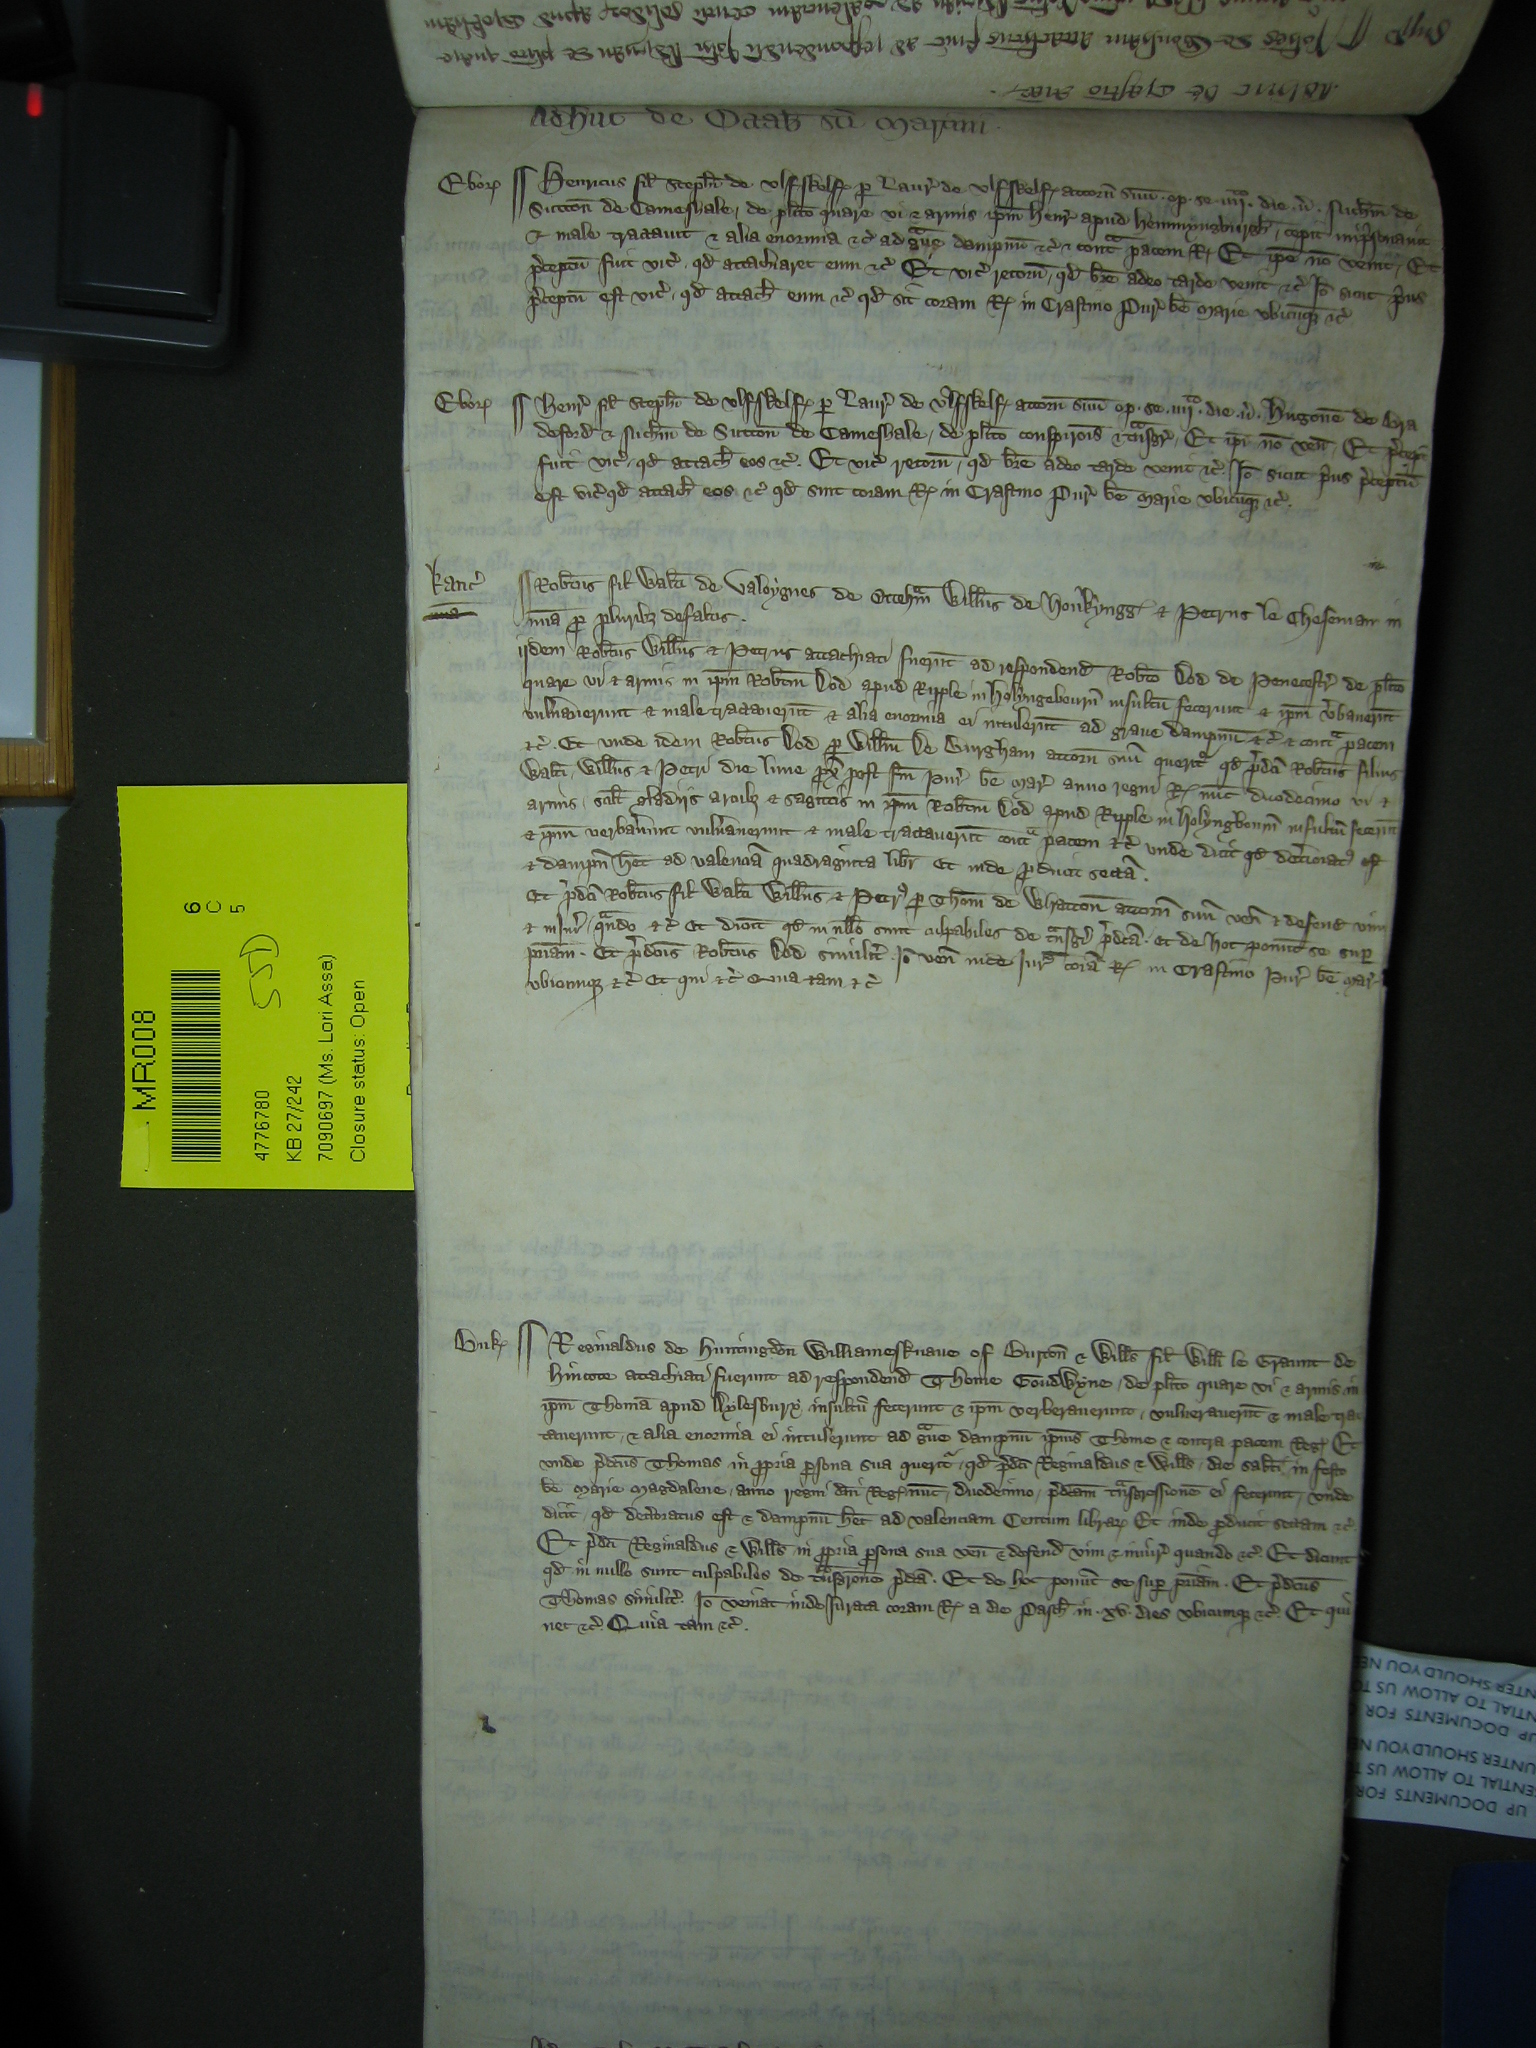 Adhuc de Octab sci Martini
Ebor Henricus fil Stephi de Ulfskelf p Laur de Ulfskelf attorn suu op se iiijto die v's Nichm de
Sutton de Cameshale de plito quare vi & armis ipm Henr apud Hemmyngburgh cepit imprisonavit
& male tractavit & alia enormia &c ad grave dampnu &c & contra pacem R Et ipe no venit Et
preceptu fuit vic qd attachiaret eum &c Et vic retorn qd bre adeo tarde venit &c Io sicut prius
preceptu est vic qd attach eum &c qd sit coram R in Crastino Pur be Marie ubicuq &c
Ebor Henr fil Stephi de Ulfskelf p Laur de Ulfskelf attorn suu op se iiijto die v's Hugonem de Bra
deford & Nichm de Sutton de Cameshale de plito conspirois & tnsgr Et ipi no ven Et precept
fuit vic qd attach eos &c Et vic retorn qd bre adeo tarde venit &c Io sicut prius preceptu
est vic qd attach eos &c qd sint coram R in Crastino Pur be Marie ubicuq &c
Kanc Robtus fil Walti de Valoygnes de Willus de & Petrus le Cheseman in
mia p pluribz defaltis
ijdem Robtus Willus & Petrus attachiati fuerunt ad respondend Robto Dod de Penecestr de plito
quare vi & armis in ipm Robtum Dod apud Ripple in Holyngebourn insultu fecerunt & ipm vbaverunt
vulnaverunt & male tractaverunt & alia enormia ei intulerunt ad grave dampnu &c & contra pacem
&c Et unde idem Robtus Dod p Willm de Burgham attorn suu querit qd predci Robtus filius
Walti Willus & Petri die lune px post fm Pur be Mar anno regni R nuc duodecimo vi &
armis scilt gladiis arcubz & sagittis in ipm Robtum Dod apud Ripple in Holyngbourn insultu fecerunt
& ipm verbaverunt vulnaverunt & male tractaverunt contra pacem &c unde dicit qd deterioratus est
& dampn het ad valencia quadraginta libr Et inde producit secta
Et predci Robtus fil Walti Willus & Petrus p Thom de Whatton attorn suu ven & defend vim
& injur quando &c Et dicut qd in nullo sunt culpabiles de tnsgr predca et de hoc ponut se sup
priam Et predcus Robtus Dod similit Io ven inde Jur cora R in Crastino Pur be Mar
ubicumq &c Et qui &c Quia tam &c
Buk Reginaldus de Huntingdon Williamesknave of Burton & Wills fil Willi le Graunt de
Hincote attachiati fuerunt ad respondend Thome Goudwyne de plito quare vi & armis in
ipm Thoma apud Aylesbury insultu fecerunt & ipm verberaverunt vulneraverunt & male trac
taverunt & alia enormia ei intulerunt ad grave dampnu ipius Thome & contra pacem Reg Et
unde predcus Thomas in propria persona sua querit qd predci Reginaldus & Wills die sabti in festo
be Marie Magdalene anno regni dni Reg nuc duodecimo predcam tnsgressione ei fecerunt unde
dicit qd deterioratus est & dampnu het ad valenciam Centum librar Et inde producit sectam &c
Et predci Reginaldus & Wills in propria persona sua ven & defend vim & injur quando &c Et dicunt
qd in nullo sunt culpabiles de tnsgressione predca Et de hoc ponut se sup priam Et predcus
Thomas similit Io veniat inde Jurata coram R a die Pasch in xv dies ubicumq &c Et qui
nec &c Quia tam &c
MR008
6
C
5
551)
4776780
KB 27/242
7090697 (Ms. Lori Assa)
Closure status: Open
UP DOCUMENTS FOR
NTIAL TO ALLOW US T
UNTER SHOULD YOU NE
UP DOCUMENTS FOR
NTIAL TO ALLOW US TO
NTER SHOULD YOU NE